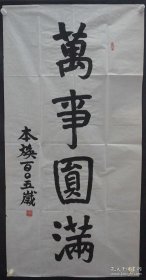 萬事圓滿
本煥百〇五歲